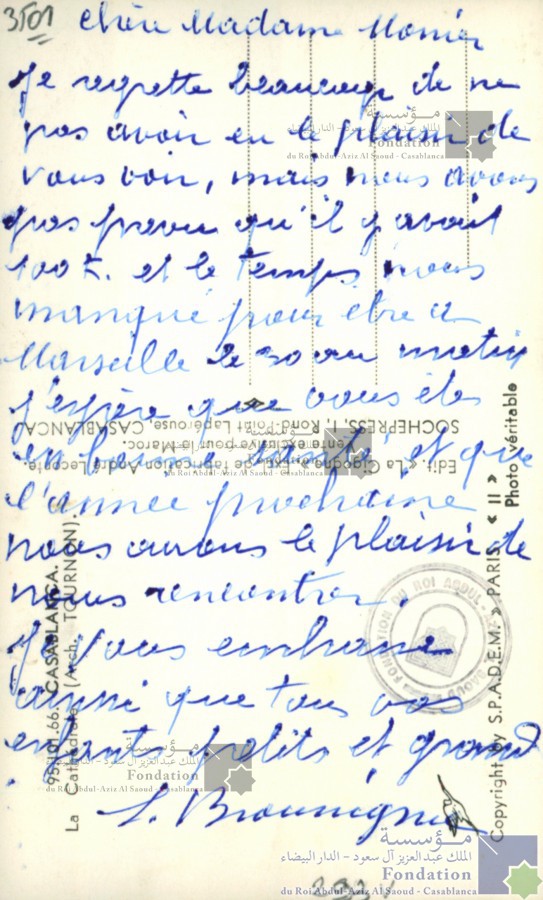 3501
Chère Madame Monier
Je regrette beaucoup de ne
pas avoir eu le plaisir de
vous voir, mais nous avons
pas prevu qu'il y avait
100 K. et le temps nous
manqué pour être a
Marseille le 30 au matin
j'espère que vous êtes
en bonne santé et que
l'année prochaine
nous aurons le plaisir de
nous rencontrer.
Je vous embrasse
ainsi que tous vos
enfants petits et grand
Edit. « La Cigogne » Exté de fabrication André Leconte
Vente exclusive pour le Maroc:
SOCHEPRESS, 1, Rond-Point Lapérouse, CASABLANCA
Photo véritable
Copyright by S.P.A.D.E.M. » PARIS « II »
95.101.66 CASABLANCA.
La Cathédrale (Arch. TOURNON)
FONDATION DU ROI ABDUL-AZIZ AL SAOUD
مؤسسة
الملك عبد العزيز آل سعود - الدار البيضاء
Fondation
du Roi Abdul-Aziz Al Saoud - Casablanca
مؤسسة
الملك عبد العزيز آل سعود - الدار البيضاء
Fondation
du Roi Abdul-Aziz Al Saoud - Casablanca
مؤسسة
الملك عبد العزيز آل سعود - الدار البيضاء
Fondation
du Roi Abdul-Aziz Al Saoud - Casablanca